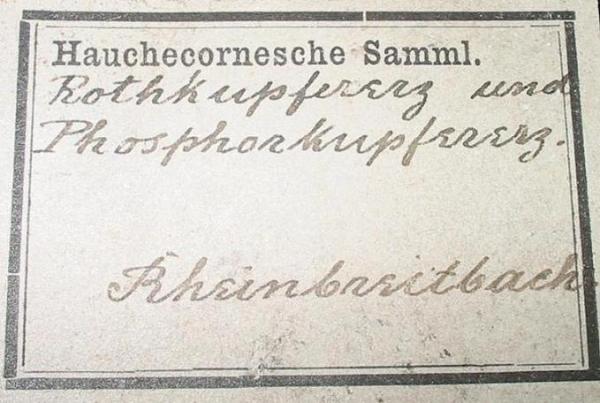 Hauchecornesche Samml.
Rothkupfererz und
Phosphorkupfererz.
Rheinbreitbach.